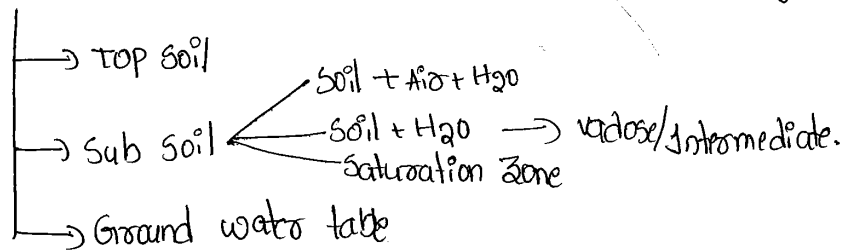 → Top Soil
Soil + Air + H2O
→ Sub Soil
Soil + H2O → vadose/Intermediate.
Saturation Zone
→ Ground water table